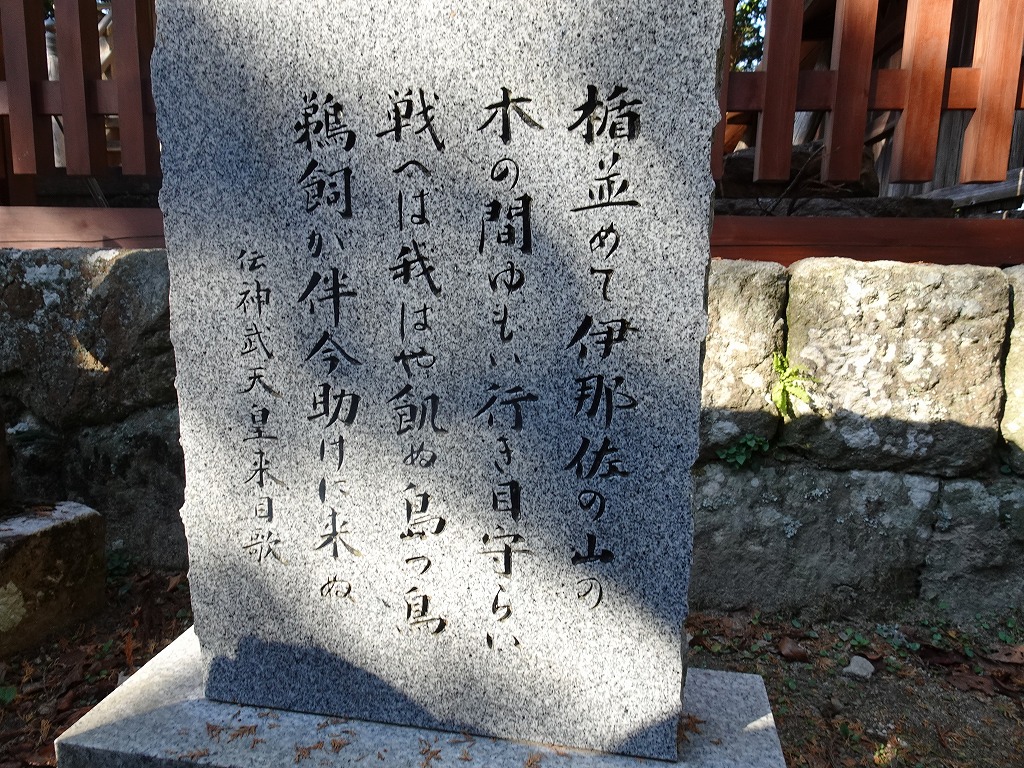 楯並めて伊那佐の山の
木の間ゆもい行き目守らい
戦へは我はや飢ぬ島つ鳥
鵜飼が伴今助けに来ぬ
伝神武天皇来目歌